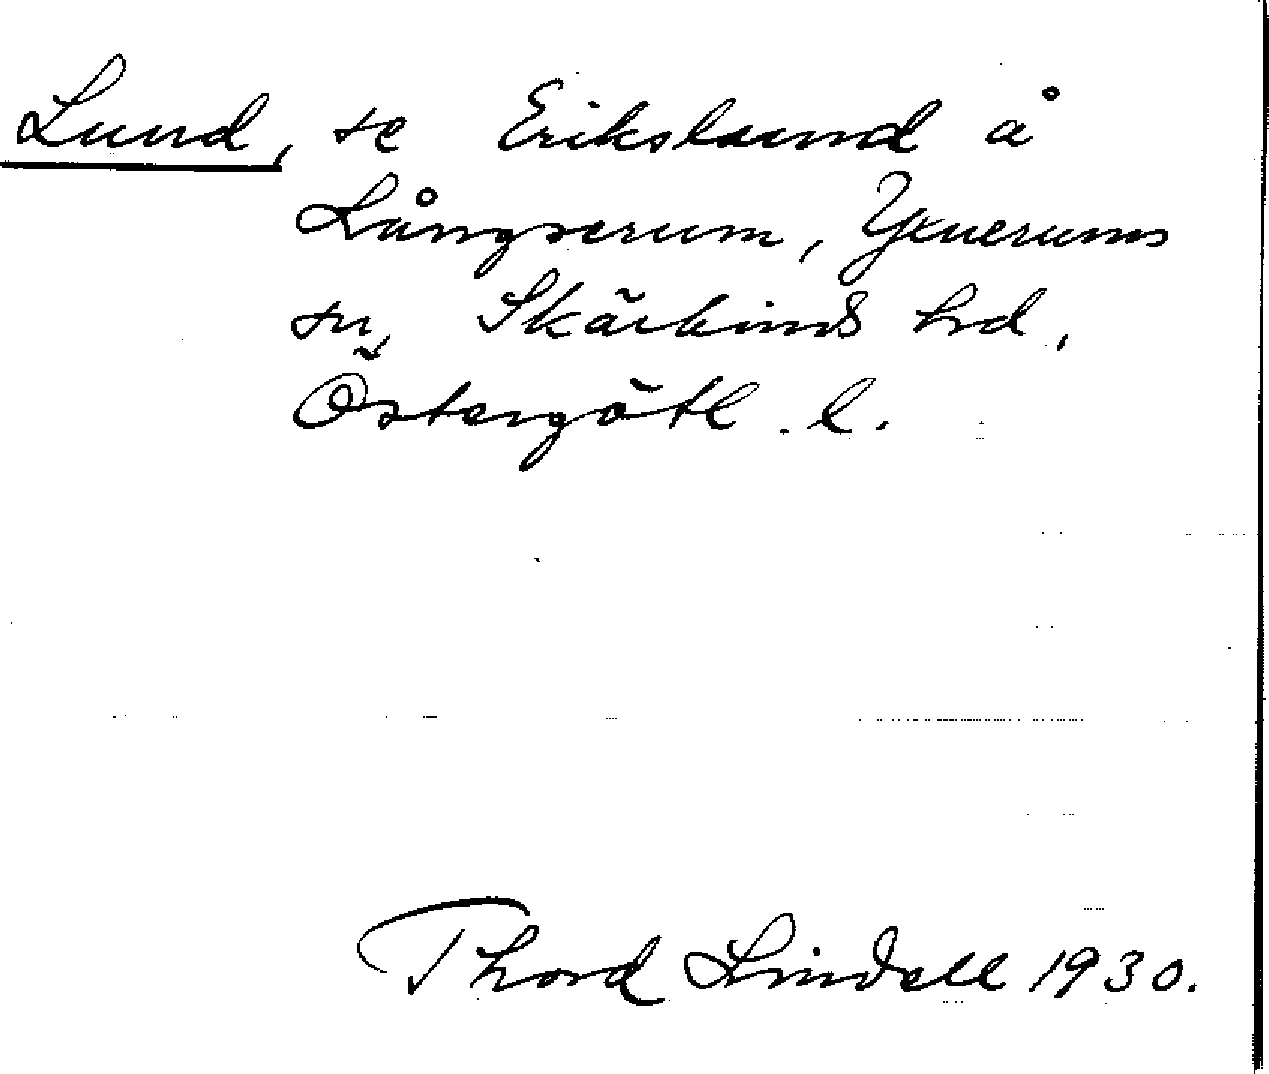 Lund, se Erikslund å
Långserum, Yxnerums
sn, Skärkinds hrd,
Östergötl. l.
Thord Lindell 1930.